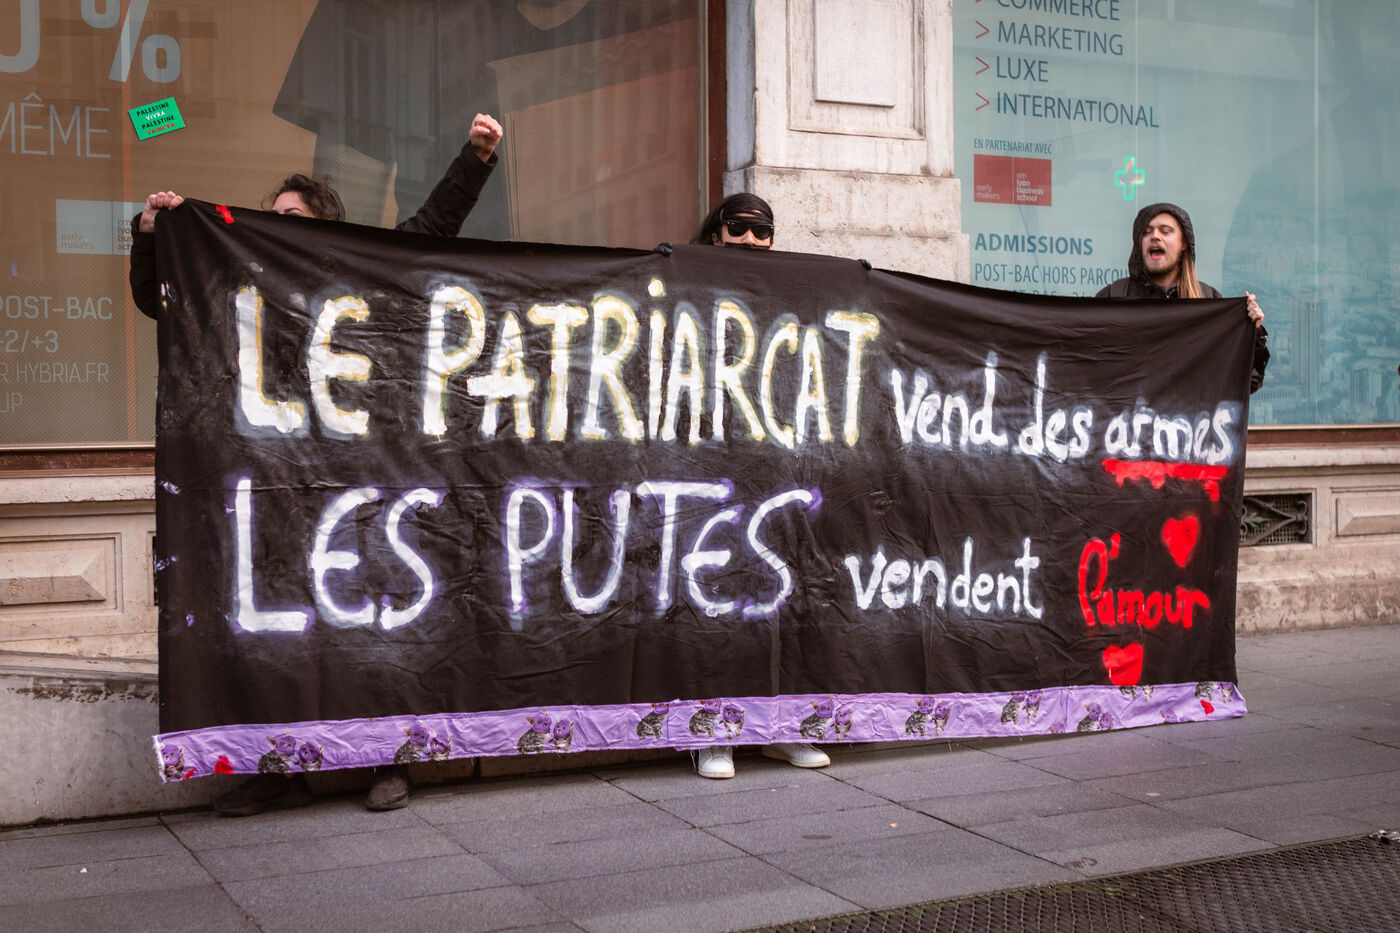 %
MÊME
PALESTINE
VIVRA
PALESTINE
VAINCRA
early
makers
em
lyon
business
school
POST-BAC
-2/+3
R HYBRIA.FR
UP
> COMMERCE
> MARKETING
> LUXE
> INTERNATIONAL
EN PARTENARIAT AVEC
early
makers
em
lyon
business
school
ADMISSIONS
POST-BAC HORS PARCOU
LE PATRIARCAT vend des armes
LES PUTES vendent l'amour